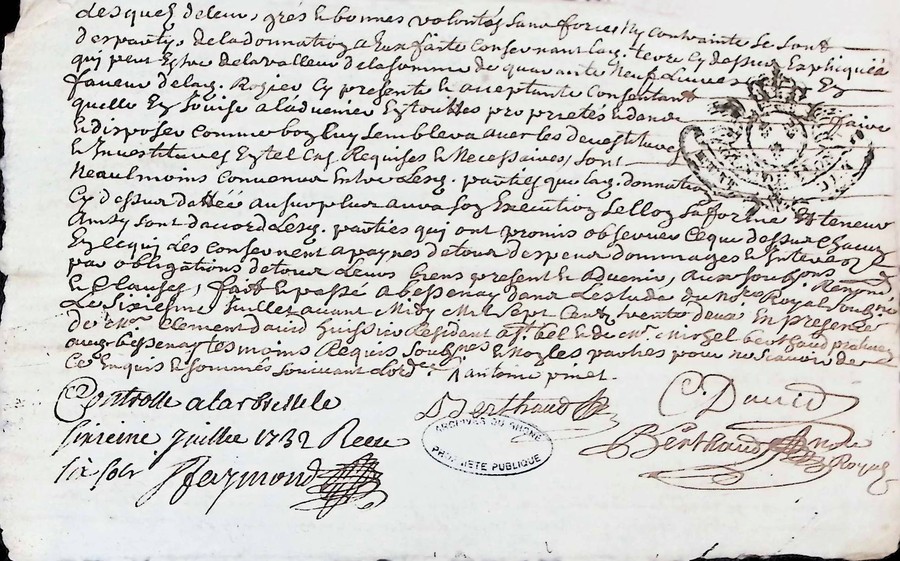 desquels de leurs grés et bonnes volontés sans force ny contrainte se sont
despartis de la donnation a eux faite consernant la terre cy dessus expliquée
qui peut estre de la valleur de la somme de quarante neuf livres Ez
faveur de lad. Rozier cy presente et acceptante consentant
quelle Ez Jouisse a ladvenier Ez touttes proprietés et danz faire
et disposer comme boz luy semblera avec les devestitures
et Investitures Ez tel cas Requises et Necessaires, sont
neaulmoins convenues Entre Lesq. parties que lad. donnation
Cy dessus dattée au surplus aura soz Execution selloz sa forme et teneur
Ainsy sont daccord Lesq. parties qui ont promis observer ce que dessus chacun
Ez ce qui Les consernent a paynes de tous despens dommages et Interest
par obligations de tous Leurs biens present et advenir, aux soubzons Renond.
et Clauses, fait et passé a bessenay dans Lestude du No.re Royal soubzné
Le sixieme Juillet avant Midy Mil sept Cents trente deux En presence
de M.re Clement david huissier Residant a et de M.re Michel berthaud praticien
aud. bessenay tesmoins Requis soubznes et Noz les parties pour ne scavoir de
Ce Enquis et sommés suivant Lord.ce Antoine pinet.
Controllé a larbresle le
sixieme Juillet 1732 Receu
six sols Faymond
Berthaud
C. David
Berthaud
no.re Royal
ARCHIVES DU RHONE
PROPRIETE PUBLIQUE